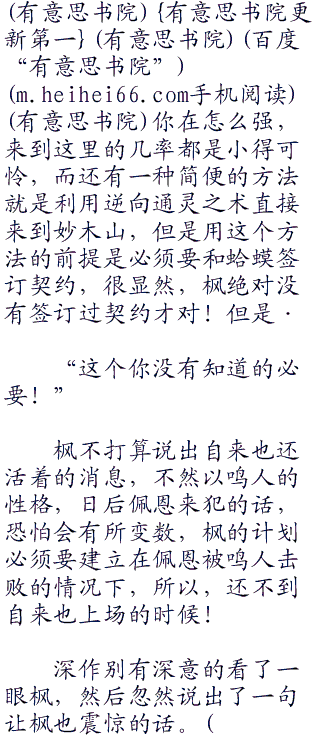 (有意思书院) {有意思书院更
新第一} (有意思书院) (百度
“有意思书院”)
(m.heihei66.com手机阅读)
(有意思书院) 你在怎么强，
来到这里的几率都是小得可
怜，而还有一种简便的方法
就是利用逆向通灵之术直接
来到妙木山，但是用这个方
法的前提是必须要和蛤蟆签
订契约，很显然，枫绝对没
有签订过契约才对！但是·
“这个你没有知道的必
要！”
枫不打算说出自来也还
活着的消息，不然以鸣人的
性格，日后佩恩来犯的话，
恐怕会有所变数，枫的计划
必须要建立在佩恩被鸣人击
败的情况下，所以，还不到
自来也上场的时候！
深作别有深意的看了一
眼枫，然后忽然说出了一句
让枫也震惊的话。(